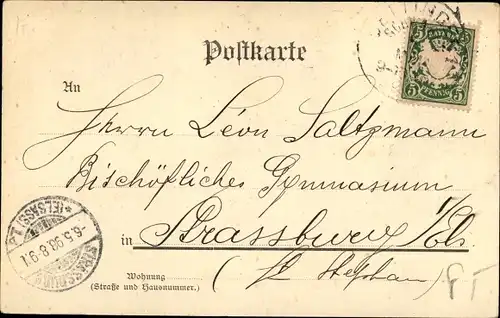 Postkarte
BAYERN
5 5
PFENNIG
An
Herrn Léon Saltzmann
Bischöfliches Gymnasium
in Strassburg i/Els
(St Stephan)
Wohnung
(Straße und Hausnummer.)
(ELSASS)
-6.5.98.8-9V
STRASSBURG